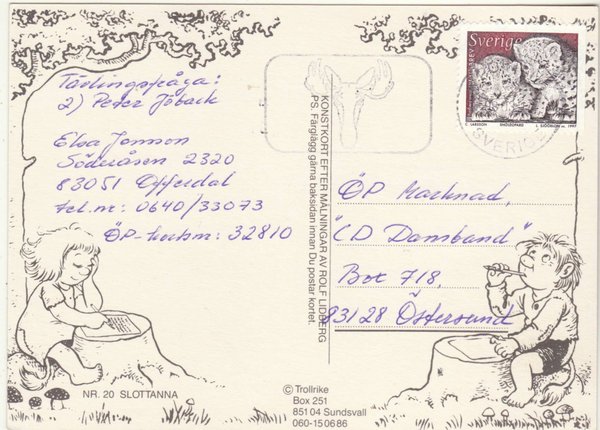 Tävlingsfråga:
2) Peter Jöback
Elsa Jonsson
Söderåsen 2320
83051 Offerdal
tel.nr: 0640/33073
ÖP-kortsnr: 32810
KONSTKORT EFTER MÅLNINGAR AV ROLF LIDBERG
PS. Färglägg gärna baksidan innan Du postar kortet.
Sverige
BREV
C. LARSSON
SNÖLEOPARD
L. SJÖÖBLOM sc. 1997
SVERIGE
ÖP Marknad,
"CD Dansband"
Box 718,
83128 Östersund
NR. 20 SLOTTANNA
© Trollrike
Box 251
851 04 Sundsvall
060-15 06 86